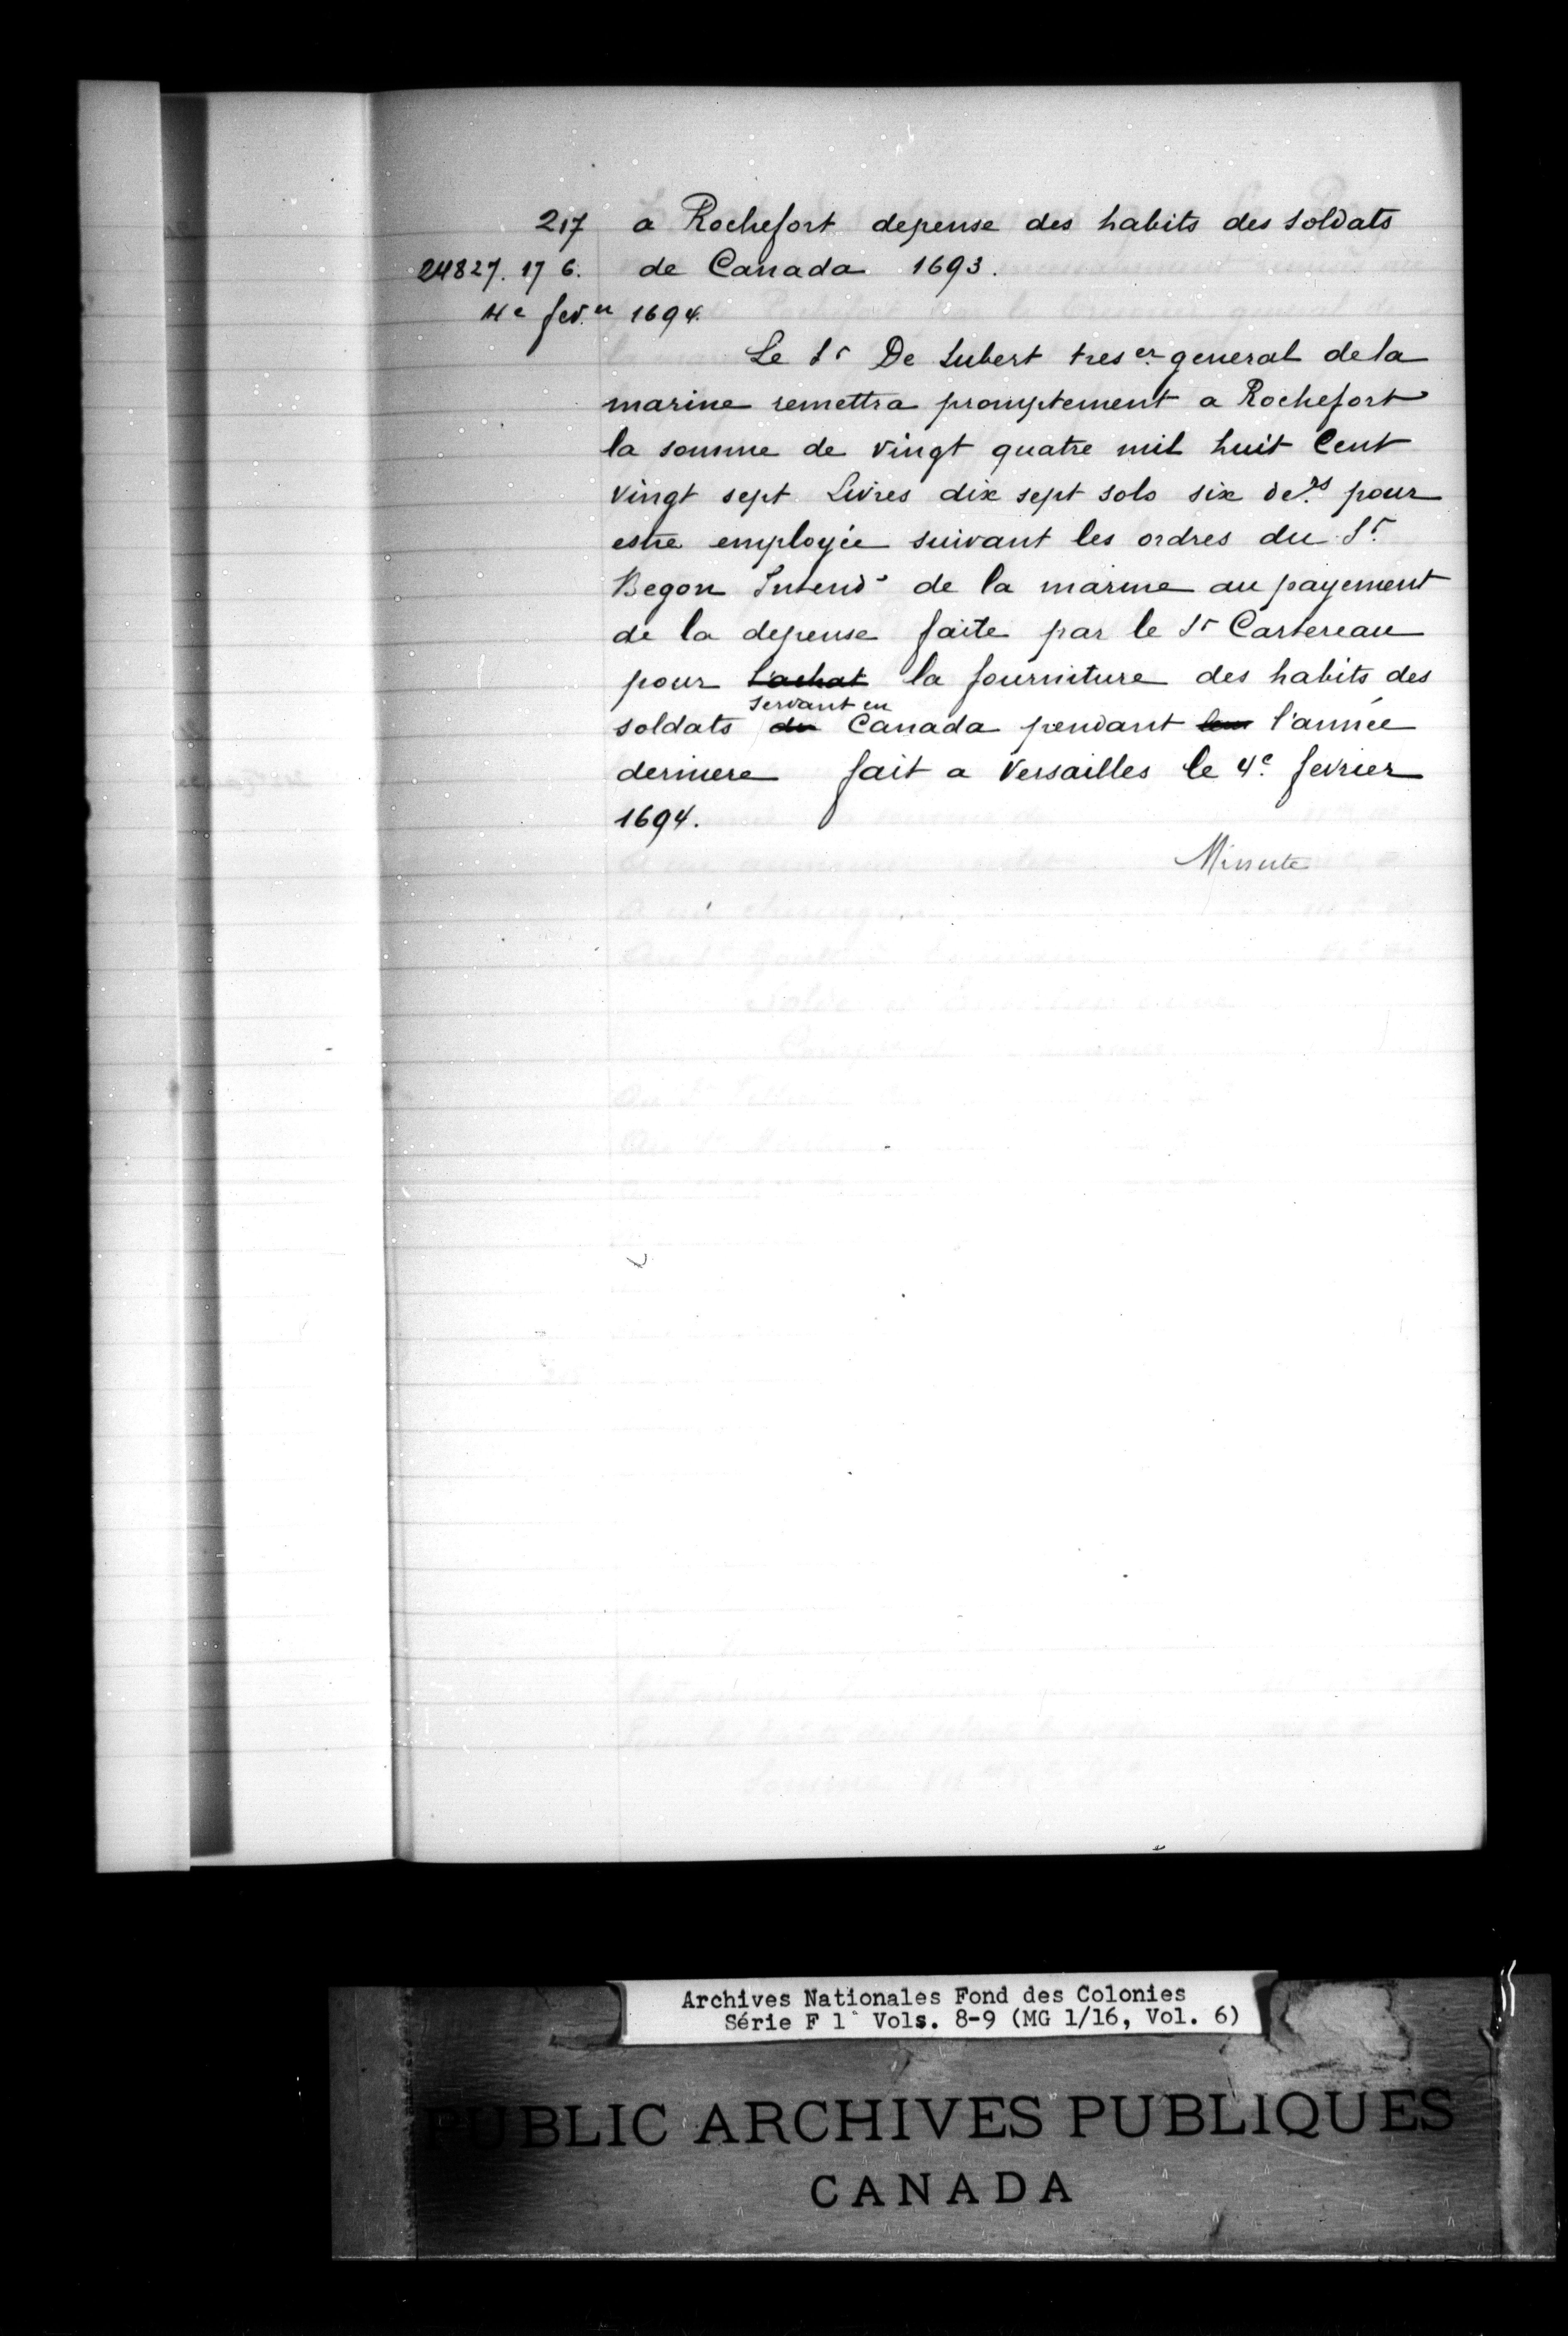 217 a Rochefort depense des habits des soldats
24827. 17 6. de Canada 1693.
4e fev.er 1694.
Le Sr De Lubert treser. general de la
marine remettra promptement a Rochefort
la somme de vingt quatre mil huit Cent
vingt sept Livres dix sept sols six de.rs pour
estre employée suivant les ordres du Sr.
Begon Intendt de la marine au payement
de la depense faite par le Sr Cartereau
pour l'achat la fourniture des habits des
servant en
soldats de Canada pendant leur l'année
derniere fait a Versailles le 4e. fevrier
1694.
Minute
Archives Nationales Fond des Colonies
Série F 1ᵃ Vols. 8-9 (MG 1/16, Vol. 6)
PUBLIC ARCHIVES PUBLIQUES
CANADA